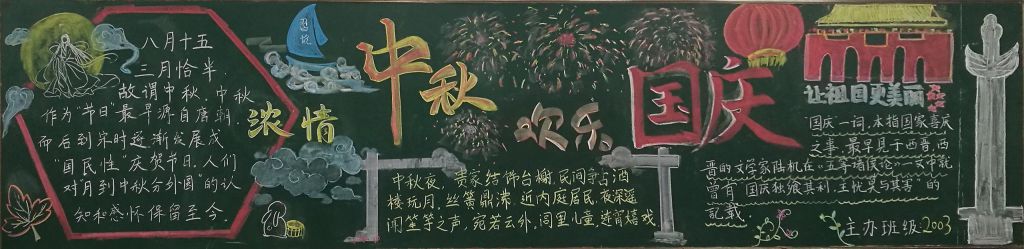 八月十五
三月恰半.
故谓中秋.中秋
作为"节日"最早源自唐朝.
而后到宋时逐渐发展成
"国民性"庆贺节日.人们
对"月到中秋分外圆"的认
知和感怀保留至今.
浓情
中秋
欢乐
国庆
中秋夜，贵家结饰台榭.民间争占酒
楼玩月.丝篁鼎沸.近内庭居民.夜深遥
闻笙竽之声，宛若云外.闾里儿童，连宵嬉戏
让祖国更美丽
"国庆"一词.本指国家喜庆
之事.最早见于西晋.西
晋的文学家陆机在《五等诸侯论》一文中就
曾有"国庆独飨其利.主忧莫与其害"的
记载.
主办班级:2003